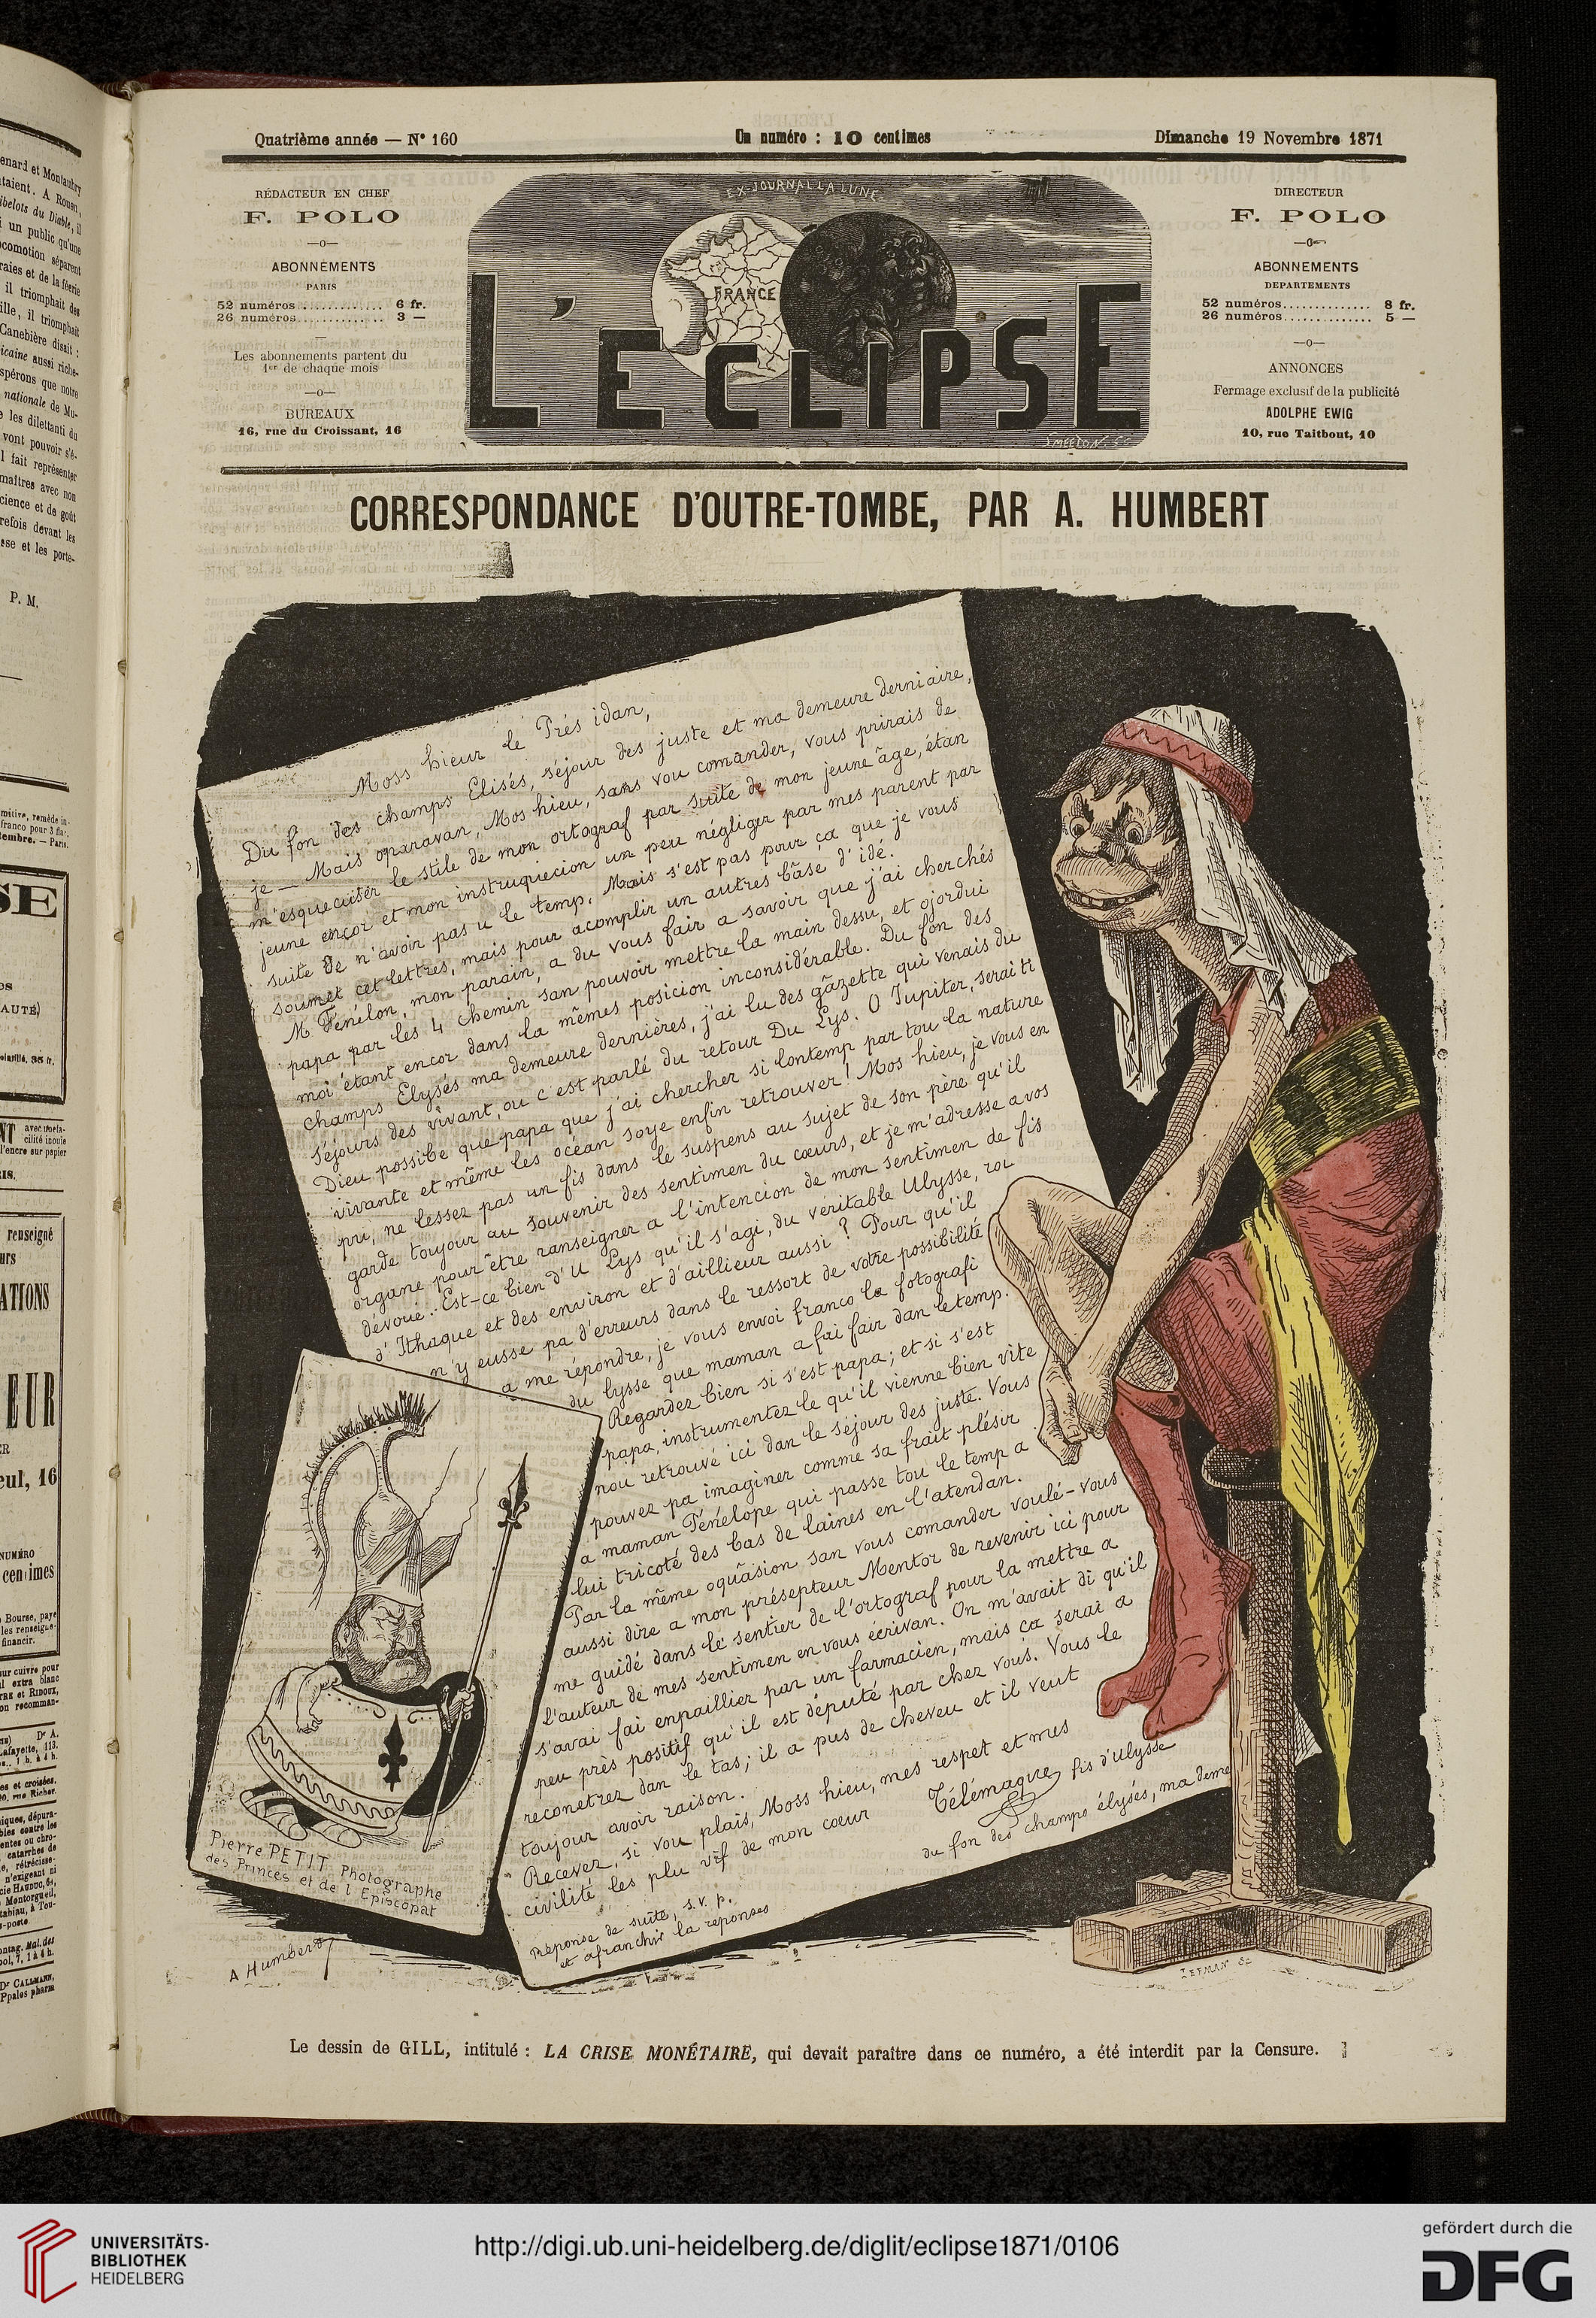 Quatrième année — N° 160
Un numéro : 10 centimes
Dimanche 19 Novembre 1871
RÉDACTEUR EN CHEF
F. POLO
—o—
ABONNEMENTS
PARIS
52 numéros ............ 6 fr.
26 numéros ............ 3 —
Les abonnements partent du
1er de chaque mois
—o—
BUREAUX
16, rue du Croissant, 16
EX-JOURNAL LA LUNE
FRANCE
L'ECLIPSE
J. MEETON Sc
DIRECTEUR
F. POLO
—o—
ABONNEMENTS
DEPARTEMENTS
52 numéros ............ 8 fr.
26 numéros ............ 5 —
—o—
ANNONCES
Fermage exclusif de la publicité
ADOLPHE EWIG
10, rue Taitbout, 10
CORRESPONDANCE D'OUTRE-TOMBE, PAR A. HUMBERT
Moss hieur le Prés idan,
Du fon des champs Elisés, séjour des juste et ma demeure derniaire,
je — Mais oparavan, Mos hieu, sans vou comander, vous prirais de
m'esquecuser le stile de mon ortograf par suite de mon jeune âge, étan
jeune encor et mon instruquiecion un peu négliger par mes parent par
suite de n'avoir pas u le temp. Mais s'est pas pour ça que je vous
soumet cet lettres, mais pour acomplir un autres bâse d'idé.
M. Fénélon, mon parain, a du vous fair a savoir que j'ai cherchés
papa par les 4 chemin san pouvoir mettre la main dessu, et ojordui
moi étant encor dans la mêmes posicion inconsidérable. Du fon des
champs Elysés ma demeure dernières, j'ai lu des gâzette qui venais du
séjours des vivant, ou c'est parlé du retour Du Lys. O Jupiter, serai ti
Dieu possibe que papa que j'ai chercher si lontemp par tou la nature
vivante et même les océan soye enfin retrouver! Mos hieu, je vous en
pru, ne lessez pas un fis dans le suspens au sujet de son père qu'il
garde toujour au souvenir des sentimen du cœurs, et je m'adresse a vos
organe pour être ranseigner a l'intencion de mon sentimen de fis
dévoué.. Est-ce bien d'U Lys qu'il s'agi, du véritable Ulysse, roi
d'Ithaque et des environ et d'aillieur aussi? Pour qu'il
n'y eusse pa d'erreurs dans le ressort de votre possibilité
a me répondre, je vous envoi franco la fotografi
du lysse que maman a fai fair dan le temp.
Regardez bien si s'est papa; et si s'est
papa, instrumentez le qu'il vienne bien vite
nou retrouvé ici dan le séjour des juste. Vous
pouvez pa imaginer comme sa frait plésir
a maman Pénélope qui passe tou le temp a
lui tricoté des bas de laines en l'atendan.
Par la même oquâsion san vous comander voulé-vous
aussi dire a mon présepteur Mentor de revenir ici pour
me guidé dans le sentier de l'ortograf pour la mettre a
l'auteur de mes sentimen en vous écrivan. On m'avait di qu'il
s'avai fai enpaillier par un farmacien, mais ça serai a
peu près positif qu'il est député par chez vous. Vous le
reconetrez dan le tas; il a pus de cheveu et il veut
toujour avoir raison.
Recevez, si vou plais, Moss hieu, mes respet et mes
civilité les plu vif de mon cœur
Télémaque fis d'Ulysse
du fon des champs élysés, ma deme
réponse de suite, s.v.p.
et afranchir la réponses
Pierre PETIT Photographe
des Princes et de l'Episcopat
A Humbert
LEFMAN Sc
Le dessin de GILL, intitulé : LA CRISE MONÉTAIRE, qui devait paraître dans ce numéro, a été interdit par la Censure.
UNIVERSITÄTS-
BIBLIOTHEK
HEIDELBERG
http://digi.ub.uni-heidelberg.de/diglit/eclipse1871/0106
gefördert durch die
DFG